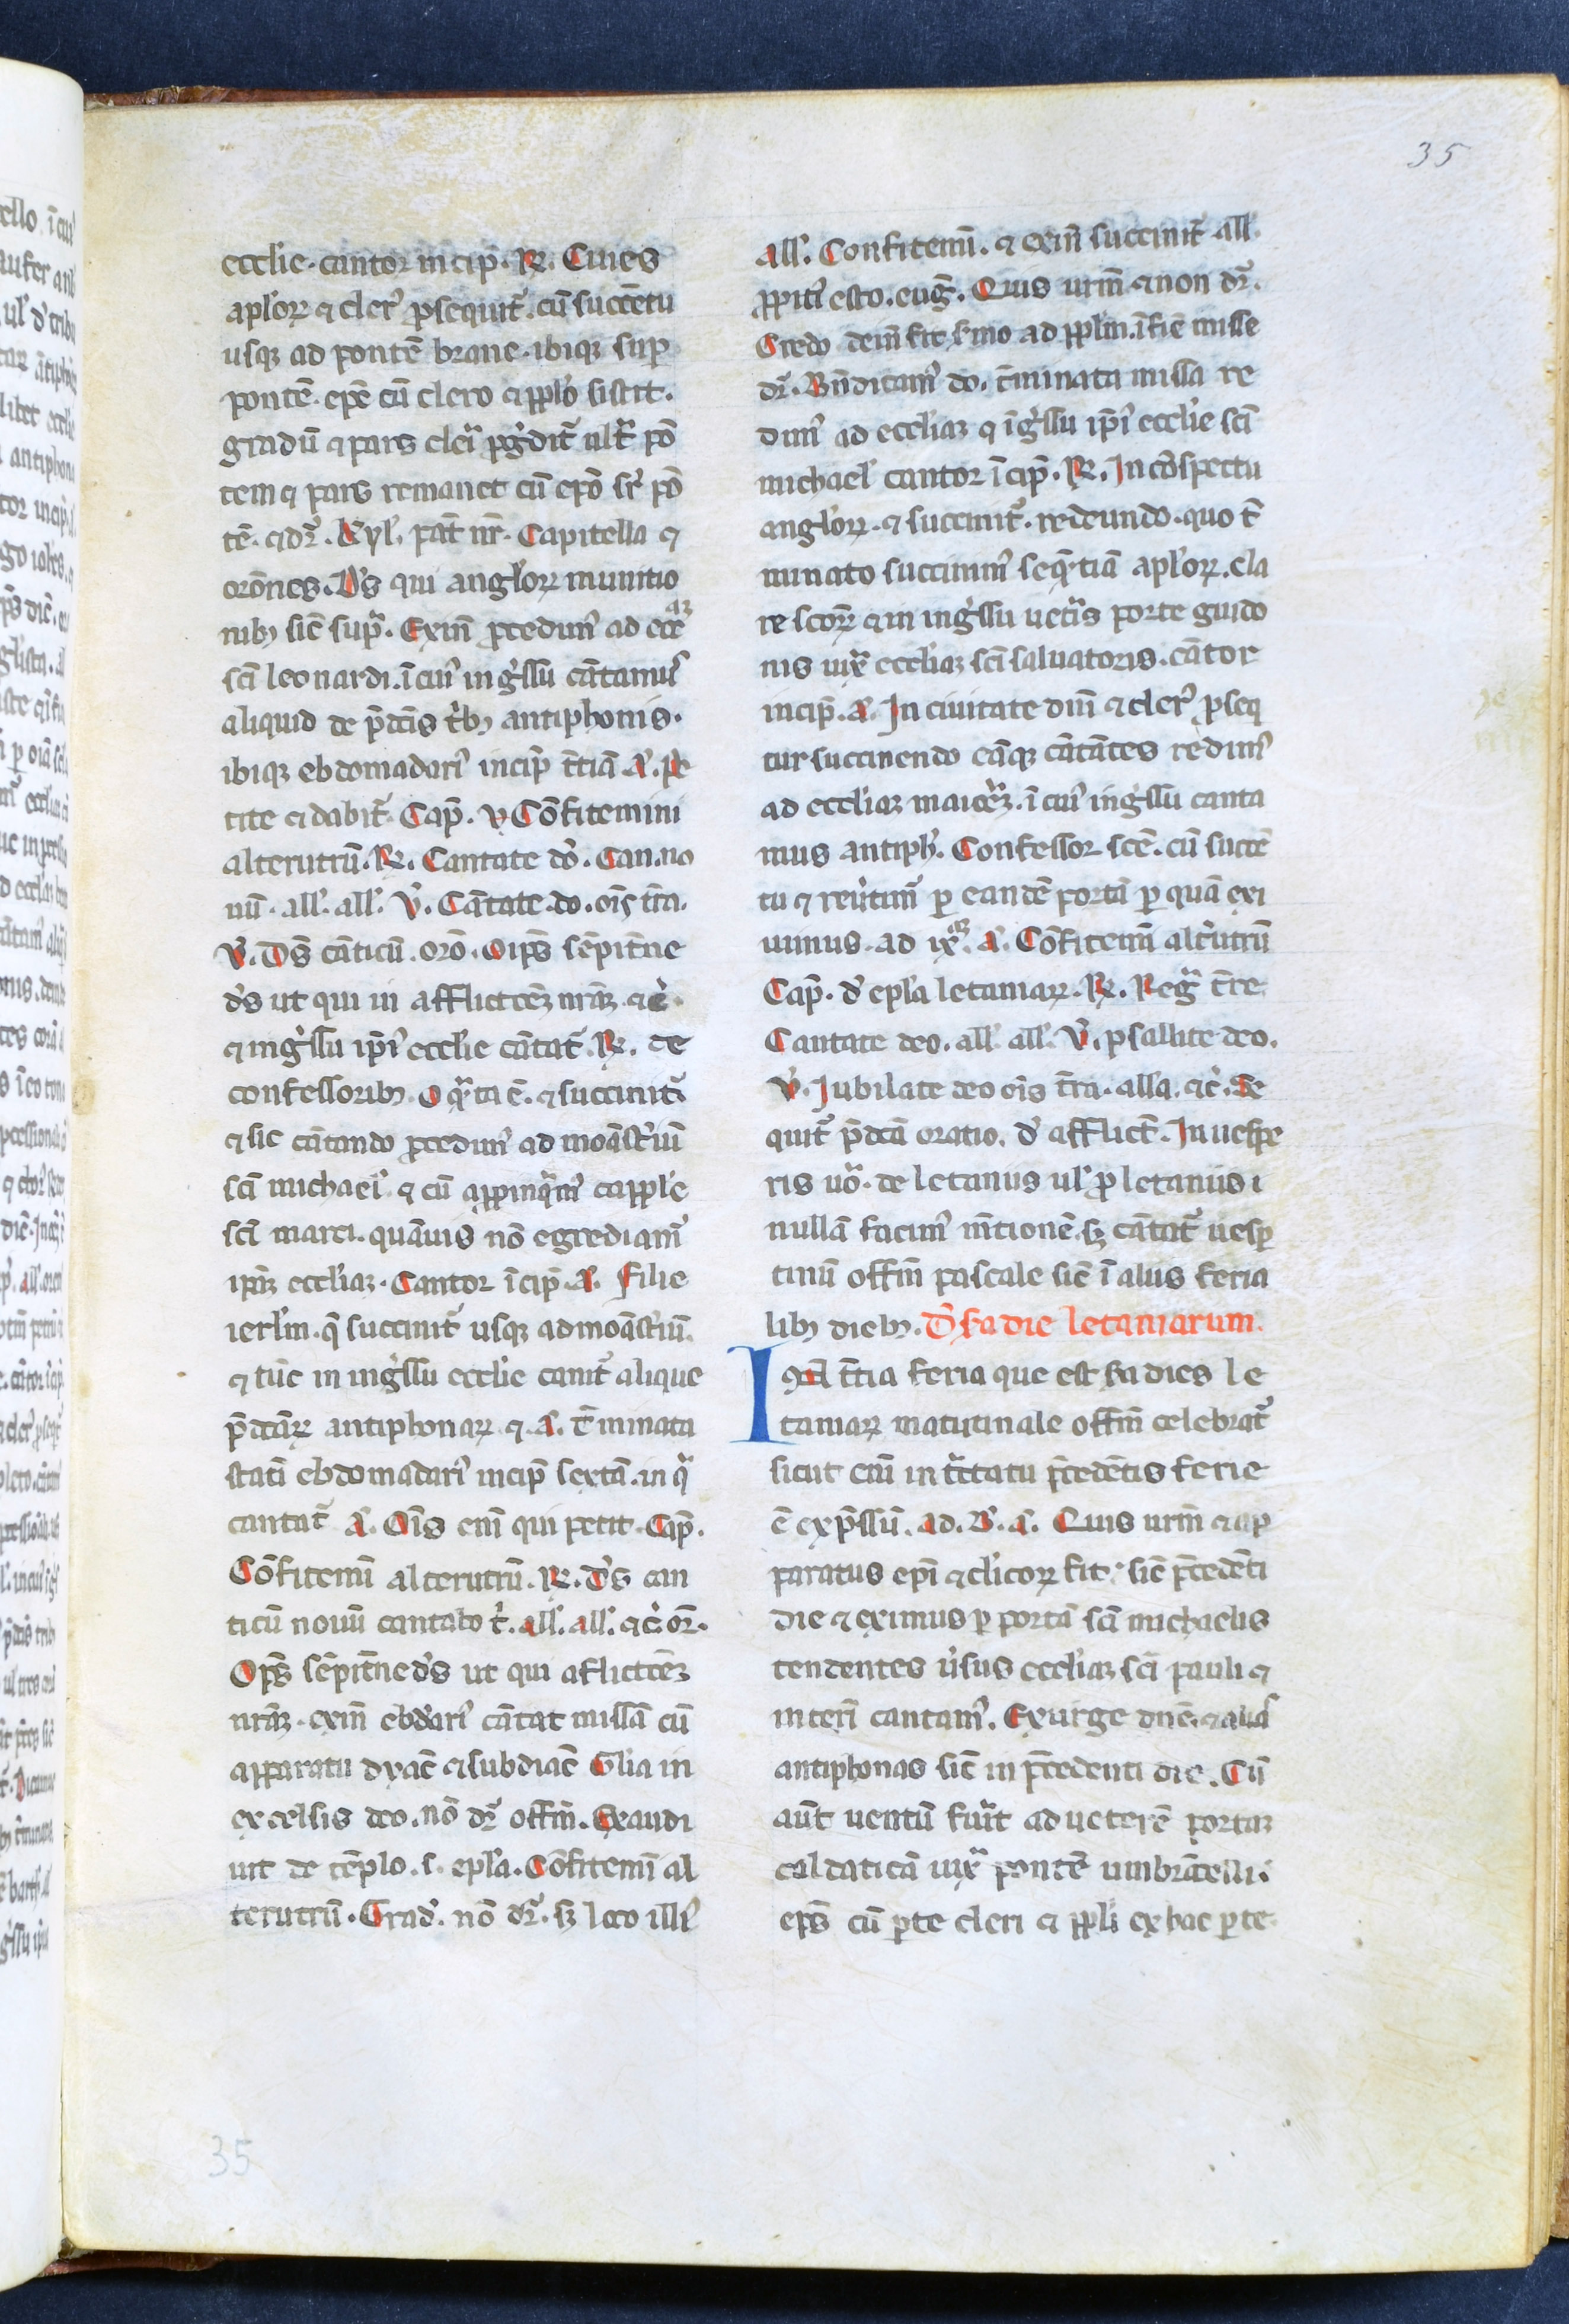 35
ecclie. cantor incip̄. ℟. Ciues
aploꝝ ⁊ cler᷒ ꝓsequit᷑. cū succētu
usqꝫ ad pontē brane. ibiqꝫ sup̄
pontē. ep̄c cū clero ⁊ pplo sistit.
gradū ⁊ pars cleri pͥgdit᷑ ult᷑ pō
tem ⁊ pars remanet cū ep̄o sr̄ pō
tē. ⁊ dr̄. kyl̓. pat̄ nr̄. Capitella ⁊
orōnes. Ds̄ qui angloꝝ munitio
nibꝫ sic̄ supͣ. Exin̄ ꝓcedim᷒ ad ecc̄aꝫ
sc̄i leonardi. ī cui᷒ ingͥssu cātam᷒
aliquid de p̄dc̄is tͥbꝫ antiphonis.
ibiqꝫ ebdomadari᷒ incip̄ t̄tiā a᷒. Pe
tite ⁊ dabit᷑. Cap̄. v Cōfitemini
alterutrū. ℟. Cantate dō. Can. no
uū. all̓. all̓. ℣. Cātate. do. oīs tr̄a.
℣. Ds̄ cāticū. orō. Oīps̄ sēpit̄ne
ds̄ ut qui in afflictōeꝫ nrāꝫ. ⁊c̄.
⁊ ingͥssu ip̄i᷒ ecclie cātat᷑. ℟. de
confessoribꝫ. O qͣ ita ē. ⁊ succinit᷑
⁊ sic cātando ꝓcedim᷒ ad moāst̓iū
sc̄i michael̓. ⁊ cū appinqͣm᷒ capple
sc̄i marci. quāuis nō egrediam᷒
ip̄aꝫ eccliaꝫ. Cantor īcip̄. a᷒. Filie
ierl̄m. q̄ succinit᷑ usqꝫ ad moāst̓iū.
⁊ tūc in ingͥssu ecclie canit᷑ alique
p̄dc̄aꝝ antiphonaꝝ. ⁊. a᷒. t̄minata
statī ebdomadari᷒ incip̄ sextā. in qͣ
cantat᷑ a᷒. Oīs enī qui petit. Cap̄.
Cōfitemī alterutrū. ℟. Ds̄ can
ticū nouū cantabo t̓. all̓. all̓. ⁊c̄ or̄.
Oīps̄ sēpit̄ne ds̄ ut qui aflictōeꝫ
nrāꝫ. exin̄ ebdari᷒ cātat missā cū
apparatu dyac̄ ⁊ subdiac̄ Gl̄ia in
excelsis deo. nō dr̄ offm̄. Exaudi
uit de tēplo. s. epl̄a. Cōfitemī al
terutrū. Grad̓. nō dr̄. sꝫ loco illi᷒
all̓. Confitemī. ⁊ exin̄ succinit᷑ all̓.
ppiti᷒ esto. eug̓. Quis urm̄ ⁊ non dr̄.
Credo dein̄ fit s̓mo ad ppl̄m. ī fiē misse
dr̄. Bn̄dicam᷒ do. t̄minata missa re
dim᷒ ad eccliaꝫ ⁊ īgͥssu ip̄i᷒ ecclie sc̄i
michael̓ cantor īcip̄. ℟. In cōspectu
angloꝝ. ⁊ succinit᷑. redeundo. quo t̄
minato succinim᷒ seq̄ntiā aploꝝ. cla
re sc̄oꝝ ⁊ in ingͥssu uet̓is porte guido
nis iuxͣ eccliaꝫ sc̄i saluatoris. cātor
incip̄. a᷒. In ciuitate dn̄i ⁊ cler᷒ ꝓseq
tur succinendo eāqꝫ cātātes redim᷒
ad eccliaꝫ maiorē. ī cui᷒ ingͥssu canta
mus antiph̓. Confessor sc̄e. cū succē
tu ⁊ reu̓tim᷒ ꝑ eandē portā ꝑ quā exi
uimus. ad ixaꝫ. a᷒. Cōfitemī alt̓utrū
Cap̄. d̓ epl̄a letaniaꝝ. ℟. Regͣ t̄re
Cantate deo. all̓. all̓. ℣. psallite deo.
℣. Jubilate deo oīs tr̄a. all̓a. ⁊c̄. Se
quit᷑ p̄dc̄a oratio. d̓ afflict̄. In uespe
ris uō. de letaniis ul̓ ꝓ letaniis i
nullā facim᷒ m̄tionē. sꝫ cātat᷑ uesp̄
tinū offm̄ pascale sic̄ ī aliis feria
libꝫ diebꝫ. D̓ sc̄da die letaniarum.
IN t̄tia feria que est sc̄da dies le
taniaꝝ matutinale offm̄ celebrat᷑
sicut enī in tͣctatu p̄cedētis ferie
ē exp̄ssū. ad. B᷒. a᷒. Quis urm̄ ⁊ ap
paratus ep̄i ⁊ cl̓icoꝝ fit sic̄ p̄cedēti
die ⁊ eximus ꝑ portā sc̄i michaelis
tendentes ū̓sus eccliaꝫ sc̄i pauli ⁊
interī cantam᷒. Exurge dn̄e. ⁊ alias
antiphonas sic̄ in p̄cedenti die. Cū
aūt uentū fuͥt ad ueterē portaꝫ
caldaticā iuxͣ pontē umbrātelli.
ep̄s cū ꝑte cleri ⁊ ppl̓i ex hac ꝑte
35